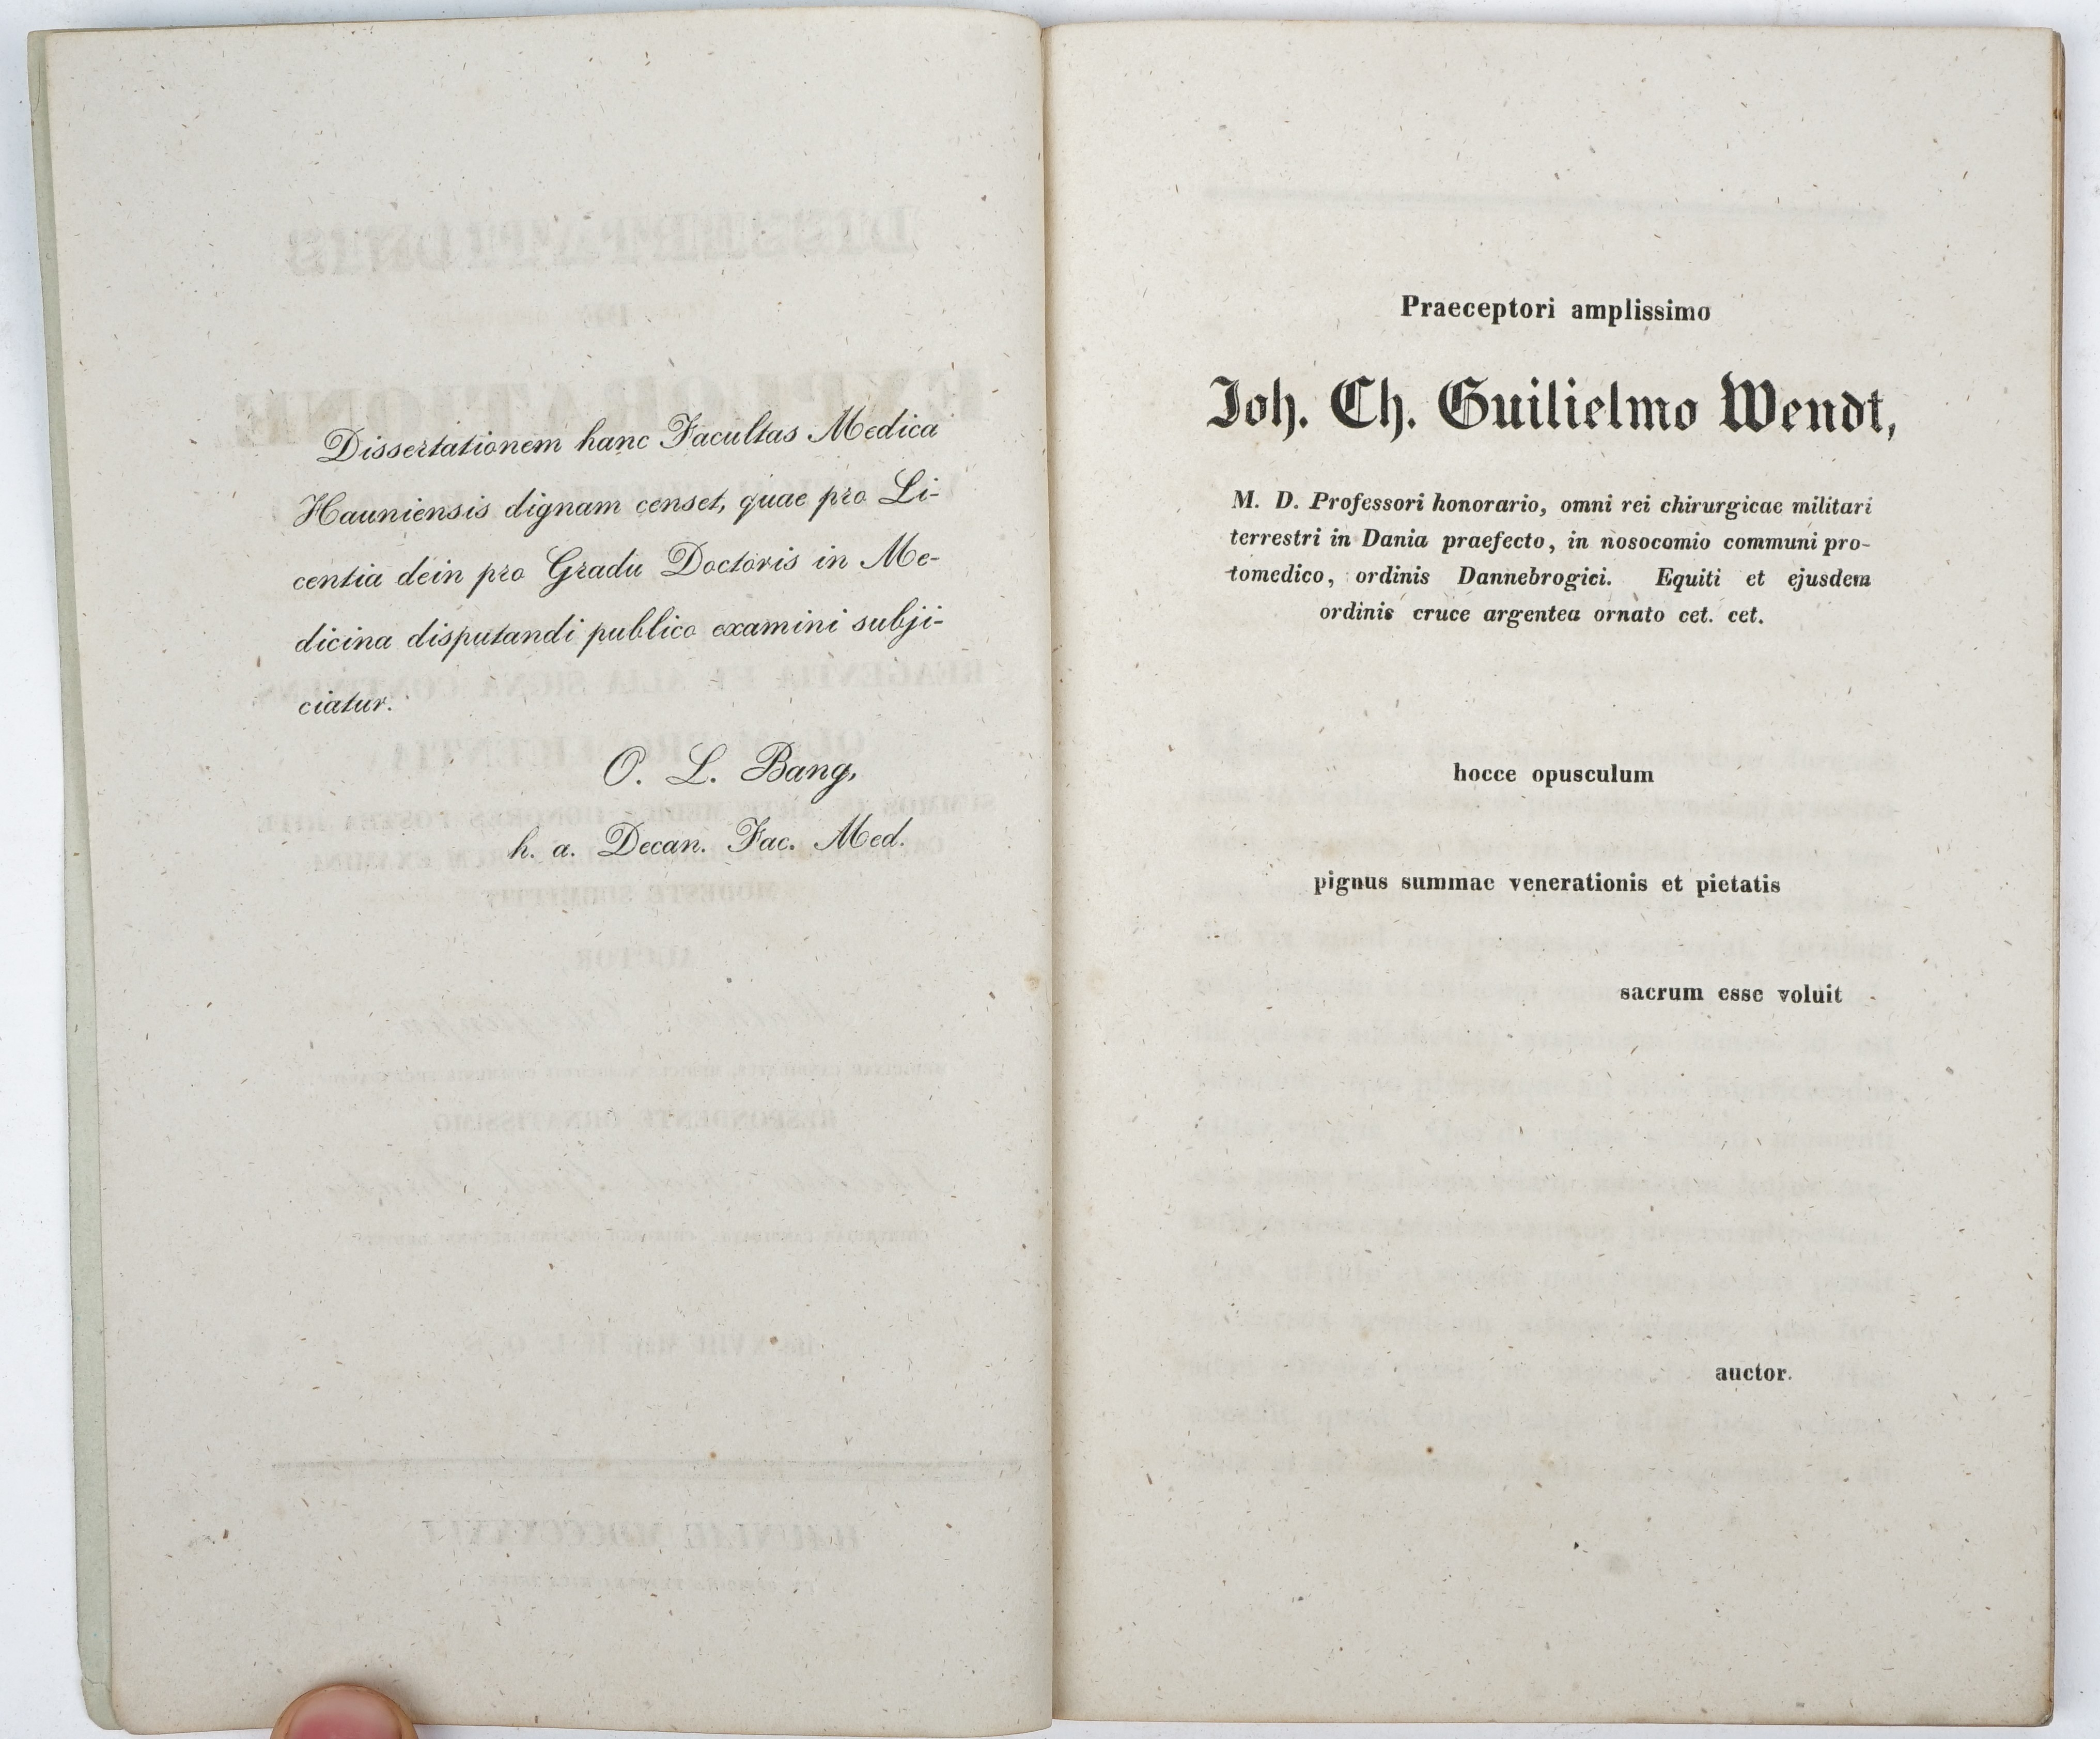 Dissertationem hanc Facultas Medica
Hauniensis dignam censet, quae pro Li-
centia dein pro Gradu Doctoris in Me-
dicina disputandi publico examini subji-
ciatur.
O. L. Bang,
h. a. Decan. Fac. Med.
Praeceptori amplissimo
Joh. Ch. Guilielmo Wendt,
M. D. Professori honorario, omni rei chirurgicae militari
terrestri in Dania praefecto, in nosocomio communi pro-
tomedico, ordinis Dannebrogici. Equiti et ejusdem
ordinis cruce argentea ornato cet. cet.
hocce opusculum
pignus summae venerationis et pietatis
sacrum esse voluit
auctor.